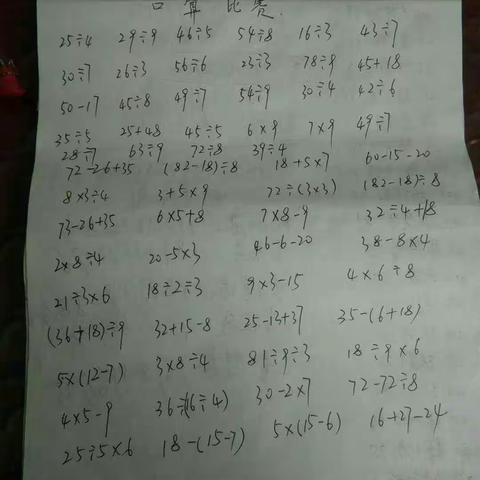 口算比赛.
25÷4 29÷9 46÷5 54÷8 16÷3 43÷7
30÷7 26÷3 56÷6 23÷3 78÷9 45+18
50-17 45÷8 49÷7 54÷9 30÷4 42÷6
35÷5 25+48 45÷5 6×9 7×9 49÷7
28÷7 63÷9 72÷8 39÷4
72-26+35 (82-18)÷8 18+5×7 60-15-20
8×3÷4 3+5×9 72÷(3×3) (82-18)÷8
73-26+35 6×5+8 7×8-9 32÷4+18
2×8÷4 20-5×3 46-6-20 38-8×4
21÷3×6 18÷2÷3 9×3-15 4×6÷8
(36+18)÷9 32+15-8 25-13+37 35-(6+18)
5×(12-7) 3×8÷4 81÷9÷3 18÷9×6
4×5-9 36÷(16÷4) 30-2×7 72-72÷8
25÷5×6 18-(15-7) 5×(15-6) 16+27-24